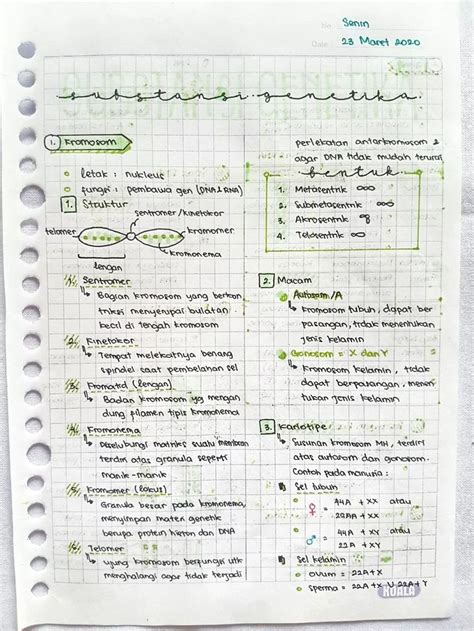 No Senin
Date 23 Maret 2020
substansi genetika
1. Kromosom
letak : nukleus
fungsi : pembawa gen (DNA & RNA)
1. Struktur
sentromer/kinetokor
telomer
kromomer
kromonema
lengan
1. Sentromer
Bagian kromosom yang berkon
triksi menyerupai bulatan
kecil di tengah kromosom
2. Kinetokor
Tempat melekatnya benang
spindel saat pembelahan sel
3. Kromatid (lengan)
Badan kromosom yg mengan
dung pilamen tipis kromonema
4. Kromonema
Diselubungi matriks suatu
terdiri atas granula seperti
manik-manik
5. Kromomer (lokus)
Granula besar pada kromonema,
menyimpan materi genetik
berupa protein histon dan DNA
6. Telomer
ujung kromosom berfungsi utk
menghalangi agar tidak terjadi
perlekatan antarkromosom &
agar DNA tidak mudah terurai
bentuk
1. Metasentrik
2. Submetasentrik
3. Akrosentrik
4. Telosentrik
2. Macam
Autosom/A
Kromosom tubuh, dapat ber
pasangan, tidak menentukan
jenis kelamin
Gonosom = X dan Y
Kromosom kelamin, tidak
dapat berpasangan, menen
tukan jenis kelamin
3. Kariotipe
Susunan kromosom MH, terdiri
atas autosom dan gonosom.
Contoh pada manusia :
1) Sel tubuh
♀ = 44A + XX atau
22AA + XX
♂ = 44A + XY atau
22A + XY
2) Sel kelamin
ovum = 22A+X
sperma = 22A+X U 22A+Y
KUALA